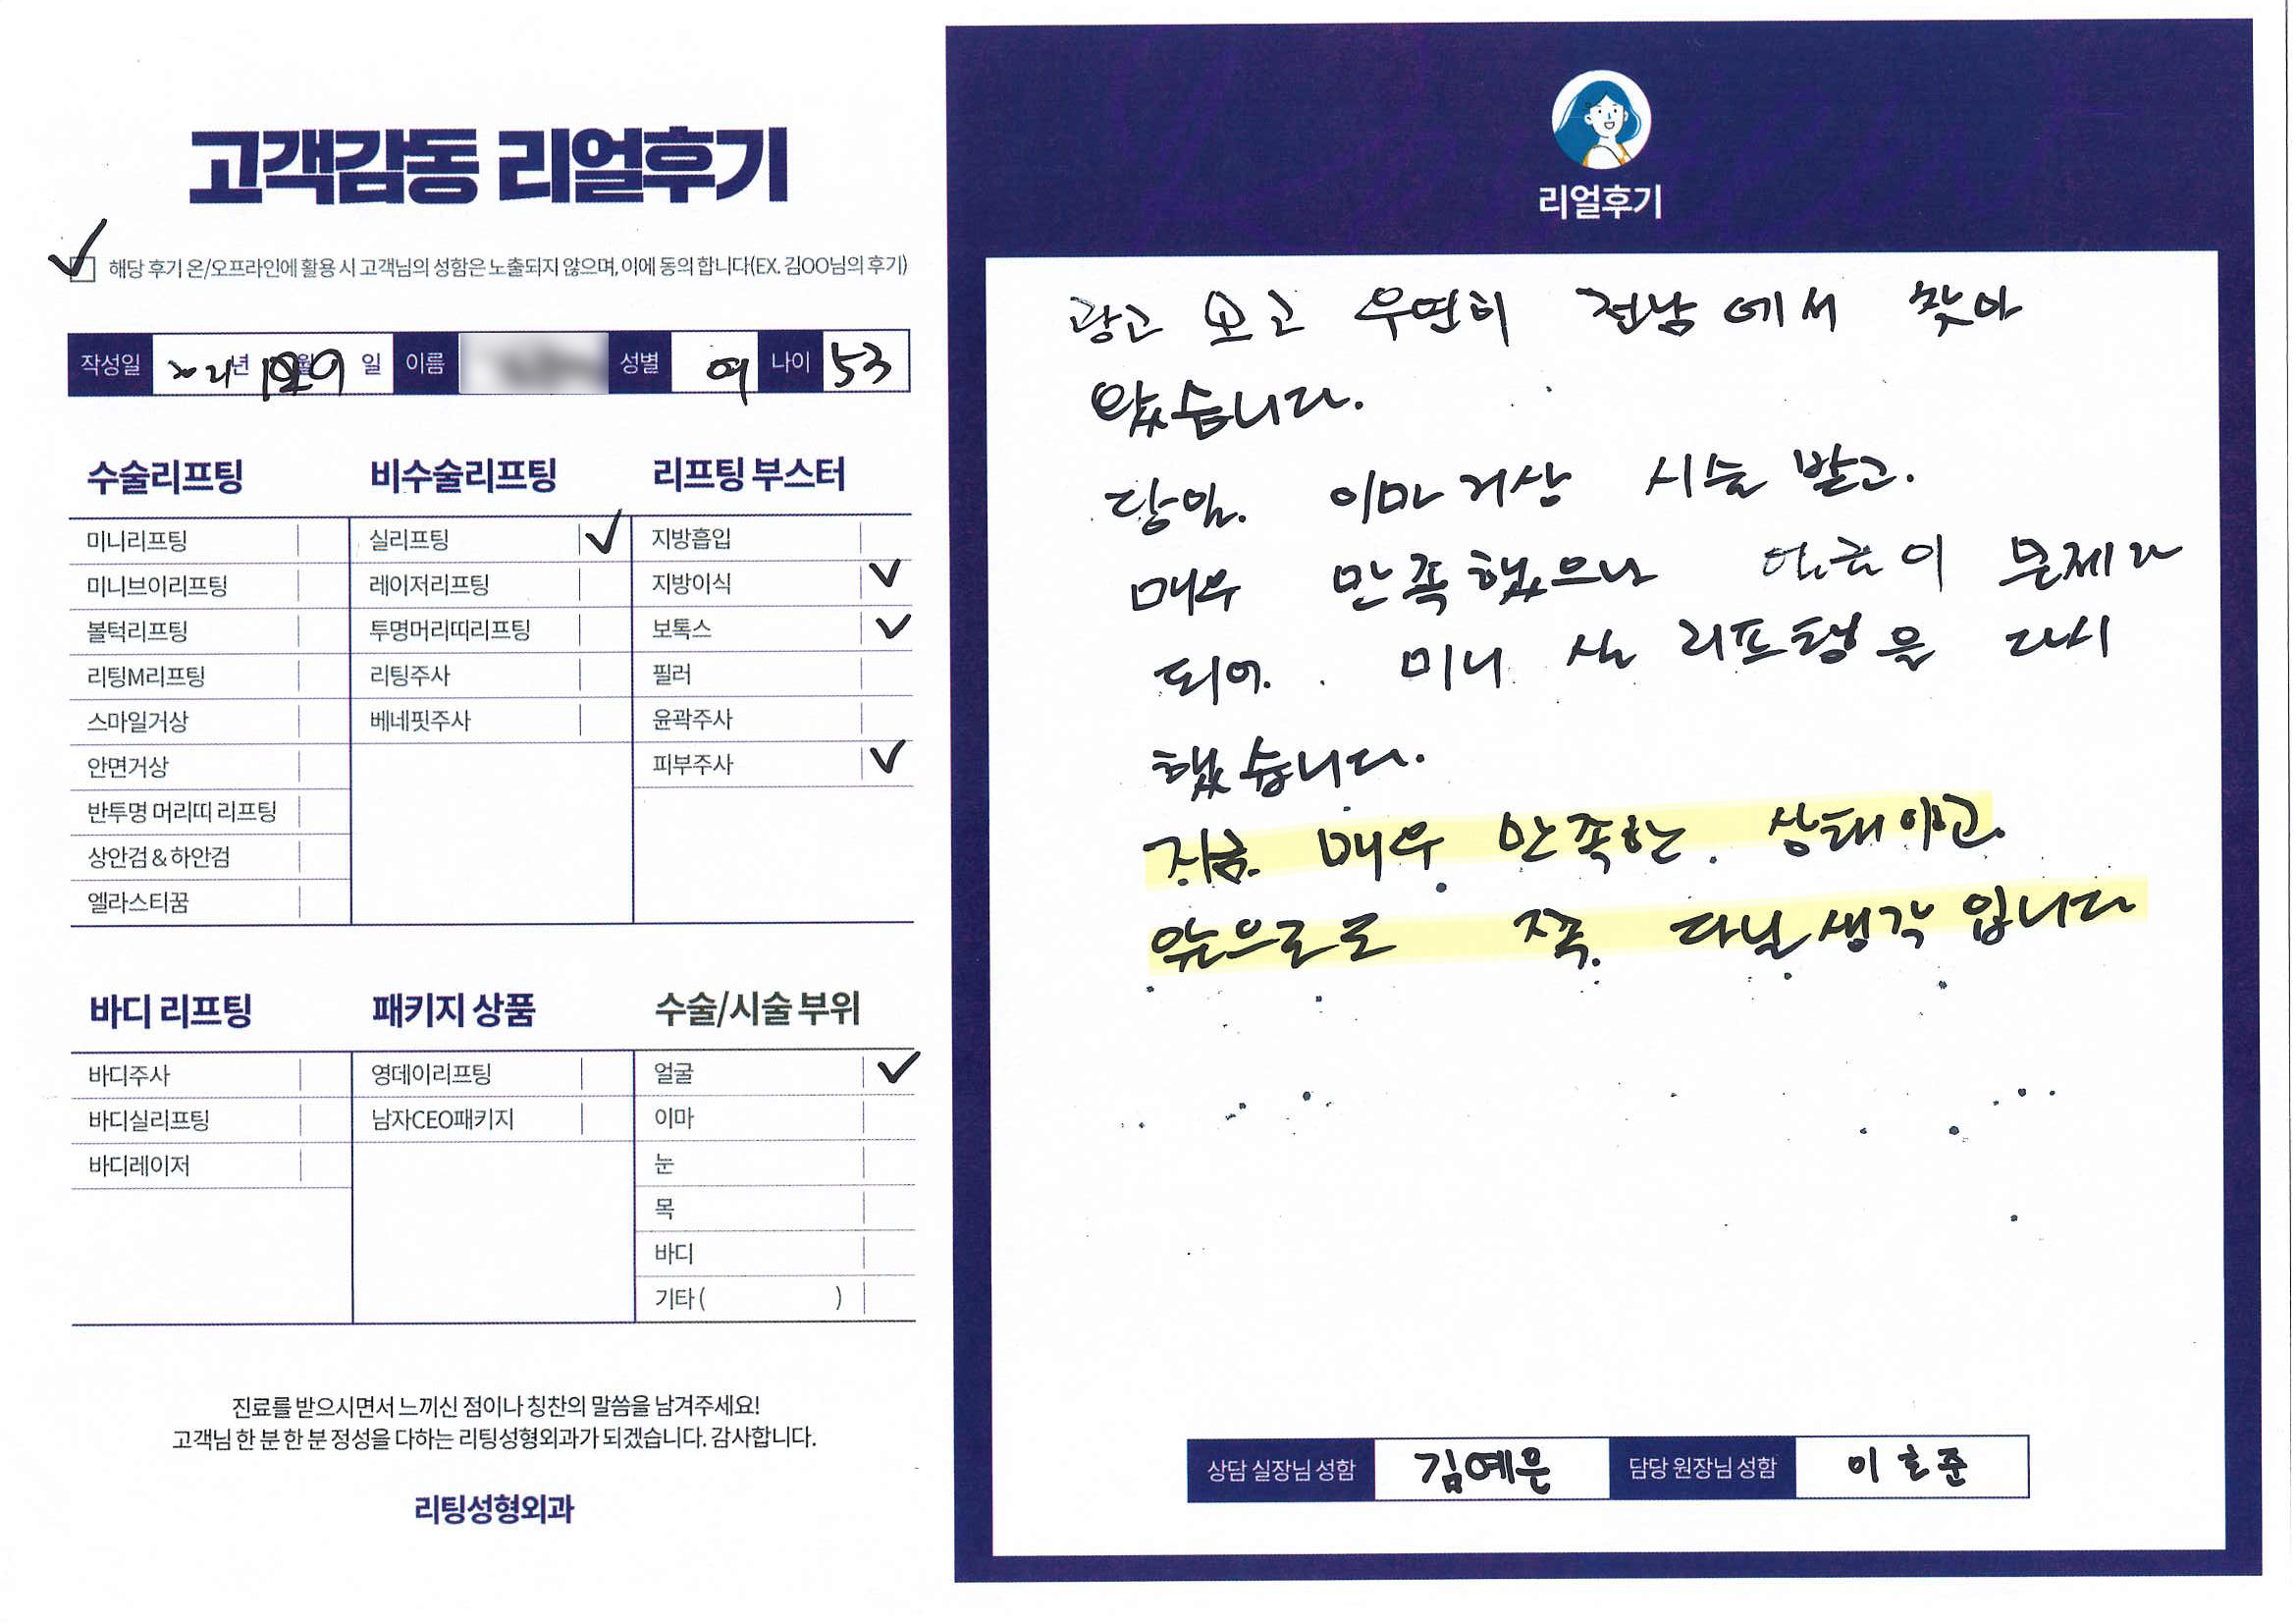 고객감동 리얼후기
해당 후기 온/오프라인에 활용 시 고객님의 성함은 노출되지 않으며, 이에 동의 합니다(EX. 김OO님의 후기)
작성일 2021년 월 일 이름 성별 여 나이 53
수술리프팅
미니리프팅
미니브이리프팅
볼턱리프팅
리팅M리프팅
스마일거상
안면거상
반투명 머리띠 리프팅
상안검 & 하안검
엘라스티꿈
비수술리프팅
실리프팅
레이저리프팅
투명머리띠리프팅
리팅주사
베네핏주사
리프팅 부스터
지방흡입
지방이식
보톡스
필러
윤곽주사
피부주사
바디 리프팅
바디주사
바디실리프팅
바디레이저
패키지 상품
영데이리프팅
남자CEO패키지
수술/시술 부위
얼굴
이마
눈
목
바디
기타 ( )
진료를 받으시면서 느끼신 점이나 칭찬의 말씀을 남겨주세요!
고객님 한 분 한 분 정성을 다하는 리팅성형외과가 되겠습니다. 감사합니다.
리팅성형외과
리얼후기
광고 보고 우연히 전남에서 찾아
왔습니다.
당일. 이마거상 시술 받고.
매우 만족했으나 얼굴이 문제가
되어. 미니 실 리프팅을 다시
했습니다.
지금. 매우 만족한. 상태이고.
앞으로도 쭉. 다닐 생각입니다
상담 실장님 성함 김예은 담당 원장님 성함 이호준